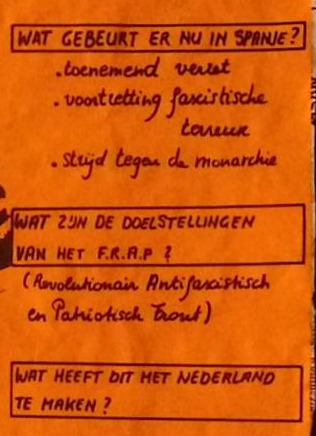 WAT GEBEURT ER NU IN SPANJE?
. toenemend verzet
. voortzetting fascistische
terreur
. strijd tegen de monarchie
WAT ZIJN DE DOELSTELLINGEN
VAN HET F.R.A.P ?
(Revolutionair Antifascistisch
en Patriotisch Front)
WAT HEEFT DIT MET NEDERLAND
TE MAKEN ?